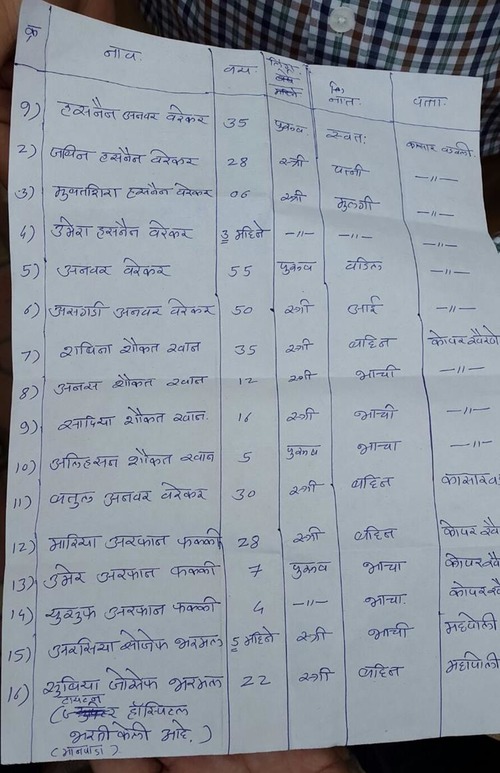 क्र नाव वय लिंग नाते पत्ता
१) हसनैन अनवर वरेकर 35 पुरूष स्वतः कासार वडवली
2) जबिन हसनैन वरेकर 28 स्त्री पत्नी —॥—
3) मुबतशिरा हसनैन वरेकर 06 स्त्री मुलगी —॥—
4) उमेरा हसनैन वरेकर 3 महिने —॥— —॥— —॥—
5) अनवर वरेकर 55 पुरूष वडिल —॥—
6) असगडी अनवर वरेकर 50 स्त्री आई —॥—
7) शबिना शौकत खान 35 स्त्री बहिन कोपर खैरणे
8) अनस शौकत खान 12 स्त्री भाची —॥—
9) सादिया शौकत खान. 16 स्त्री भाची —॥—
10) अलिहसन शौकत खान 5 पुरूष भाचा —॥—
11) बतुल अनवर वरेकर 30 स्त्री बहिन कासारव
12) मारिया अरफान फक्की 28 स्त्री बहिन कोपर खै
13) उमेर अरफान फक्की 7 पुरूष भाचा कोपरखै
14) युसुफ अरफान फक्की 4 —॥— भाचा. कोपरखै
15) अरसिया जोजेफ भरमल 5 महिने स्त्री भाची महापोली
16) सुबिया जोसेफ भरमल 22 स्त्री बहिन महापोली
टायटन
( हॉस्पिटल
भरती केली आहे.)
(मानपाडा).